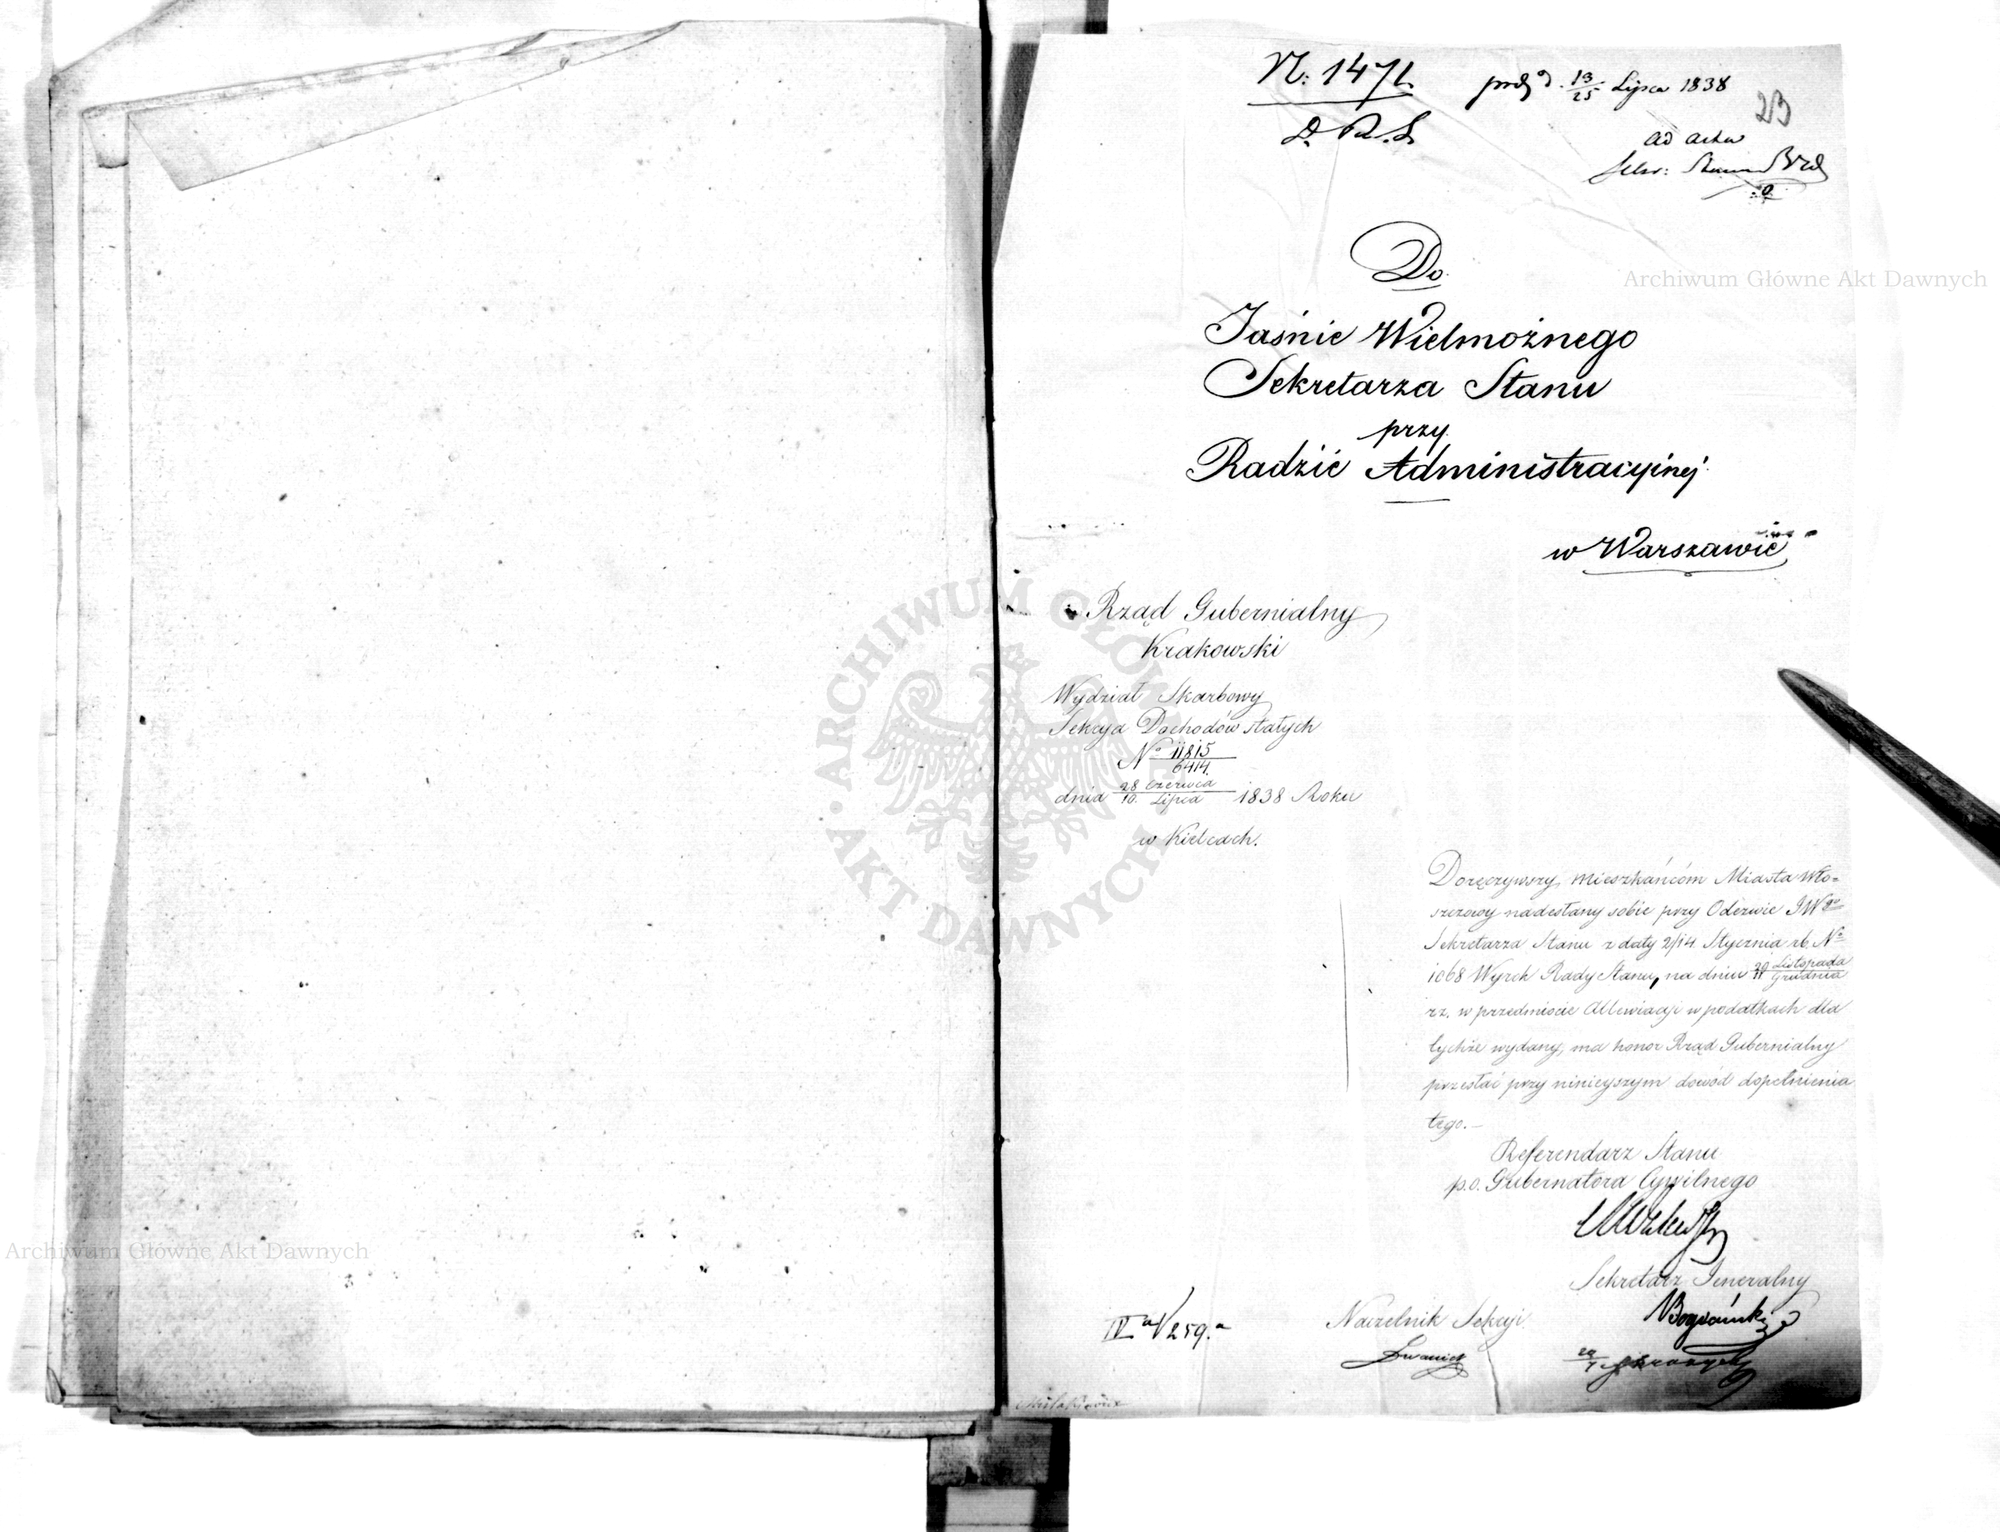 N: 1471.
D. R. S.
d. 13/25 Lipca 1838
23
ad acta
Do
Jaśnie Wielmożnego
Sekretarza Stanu
przy
Radzie Administracyjnej
w Warszawie
Rząd Gubernialny
Krakowski
Wydział Skarbowy
Sekcya Dochodów stałych
No 11815/6414.
dnia 28 Czerwca/10. Lipca 1838 Roku
w Kielcach.
Doręczywszy mieszkańcóm Miasta Wło=
szczowy nadesłany sobie przy Odezwie JWgo
Sekretarza Stanu z daty 2/14 Stycznia rb. No
1068 Wyrok Rady Stanu, na dniu Listopada/Grudnia
rz. w przedmiocie Allewiacji w podatkach dla
tychże wydany, ma honor Rząd Gubernialny
przesłać przy ninieyszym dowód dopełnienia
tego.—
Referendarz Stanu
p.o. Gubernatora Cywilnego
Sekretarz Jeneralny
Naczelnik Sekcji
IV a/259.a
Archiwum Główne Akt Dawnych
Archiwum Główne Akt Dawnych
ARCHIWUM GŁÓWNE AKT DAWNYCH